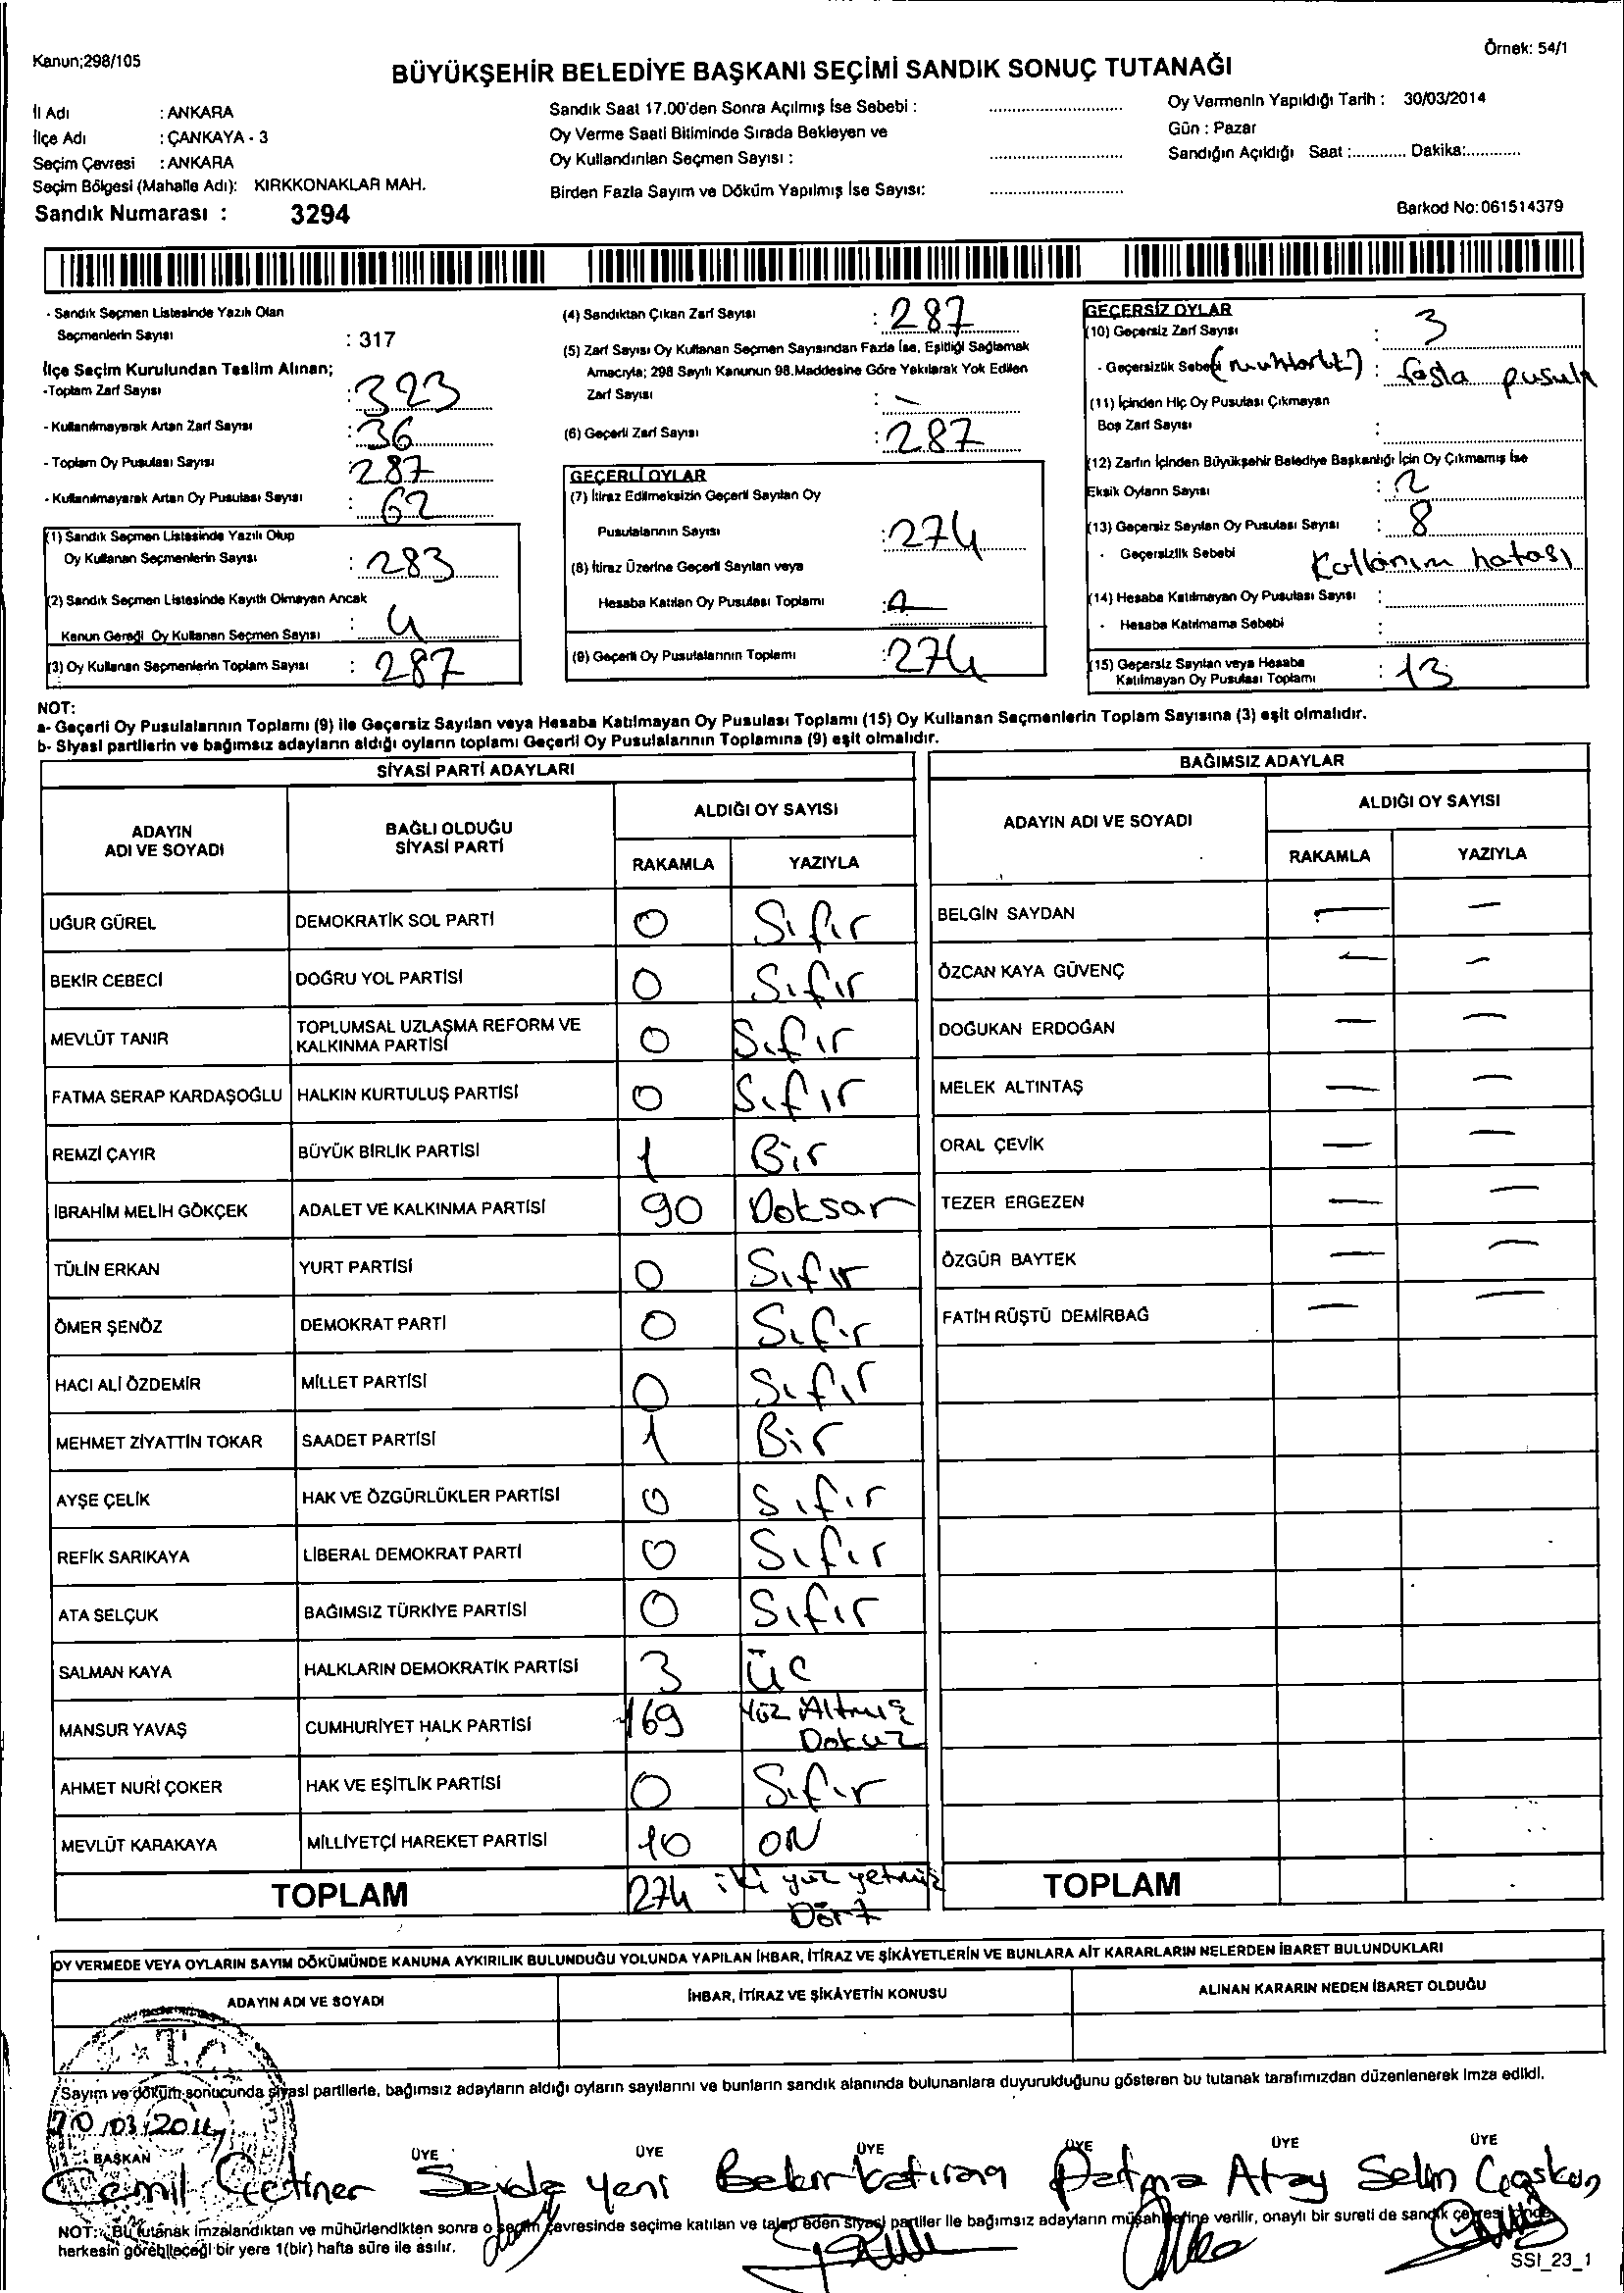 Kanun;298/105
Örnek: 54/1
BÜYÜKŞEHİR BELEDİYE BAŞKANI SEÇİMİ SANDIK SONUÇ TUTANAĞI
İl Adı : ANKARA
İlçe Adı : ÇANKAYA - 3
Seçim Çevresi : ANKARA
Seçim Bölgesi (Mahalle Adı): KIRKKONAKLAR MAH.
Sandık Numarası : 3294
Sandık Saat 17.00'den Sonra Açılmış İse Sebebi :
Oy Verme Saati Bitiminde Sırada Bekleyen ve
Oy Kullandırılan Seçmen Sayısı :
Birden Fazla Sayım ve Döküm Yapılmış İse Sayısı:
Oy Vermenin Yapıldığı Tarih : 30/03/2014
Gün : Pazar
Sandığın Açıldığı Saat :............ Dakika:............
Barkod No:061514379
- Sandık Seçmen Listesinde Yazılı Olan
Seçmenlerin Sayısı : 317
İlçe Seçim Kurulundan Teslim Alınan;
-Toplam Zarf Sayısı : 323
- Kullanılmayarak Artan Zarf Sayısı : 36
- Toplam Oy Pusulası Sayısı : 287
- Kullanılmayarak Artan Oy Pusulası Sayısı : 62
(1) Sandık Seçmen Listesinde Yazılı Olup
Oy Kullanan Seçmenlerin Sayısı : 283
(2) Sandık Seçmen Listesinde Kayıtlı Olmayan Ancak
Kanun Gereği Oy Kullanan Seçmen Sayısı : 4
(3) Oy Kullanan Seçmenlerin Toplam Sayısı : 287
(4) Sandıktan Çıkan Zarf Sayısı : 287
(5) Zarf Sayısı Oy Kullanan Seçmen Sayısından Fazla İse, Eşitliği Sağlamak
Amacıyla; 298 Sayılı Kanunun 98.Maddesine Göre Yakılarak Yok Edilen
Zarf Sayısı : -
(6) Geçerli Zarf Sayısı : 287
GEÇERLİ OYLAR
(7) İtiraz Edilmeksizin Geçerli Sayılan Oy
Pusulalarının Sayısı : 274
(8) İtiraz Üzerine Geçerli Sayılan veya
Hesaba Katılan Oy Pusulası Toplamı :
(9) Geçerli Oy Pusulalarının Toplamı : 274
GEÇERSİZ OYLAR
(10) Geçersiz Zarf Sayısı : 3
- Geçersizlik Sebebi (muhtarlık) : fazla pusula
(11) İçinden Hiç Oy Pusulası Çıkmayan
Boş Zarf Sayısı :
(12) Zarfın İçinden Büyükşehir Belediye Başkanlığı İçin Oy Çıkmamış İse
Eksik Oyların Sayısı : 2
(13) Geçersiz Sayılan Oy Pusulası Sayısı : 8
- Geçersizlik Sebebi Kullanım hatası
(14) Hesaba Katılmayan Oy Pusulası Sayısı :
- Hesaba Katılmama Sebebi :
(15) Geçersiz Sayılan veya Hesaba
Katılmayan Oy Pusulası Toplamı : 13
NOT:
a- Geçerli Oy Pusulalarının Toplamı (9) ile Geçersiz Sayılan veya Hesaba Katılmayan Oy Pusulası Toplamı (15) Oy Kullanan Seçmenlerin Toplam Sayısına (3) eşit olmalıdır.
b- Siyasi partilerin ve bağımsız adayların aldığı oyların toplamı Geçerli Oy Pusulalarının Toplamına (9) eşit olmalıdır.
SİYASİ PARTİ ADAYLARI
ADAYIN ADI VE SOYADI
BAĞLI OLDUĞU SİYASİ PARTİ
ALDIĞI OY SAYISI
RAKAMLA YAZIYLA
UĞUR GÜREL DEMOKRATİK SOL PARTİ 0 Sıfır
BEKİR CEBECİ DOĞRU YOL PARTİSİ 0 Sıfır
MEVLÜT TANIR TOPLUMSAL UZLAŞMA REFORM VE KALKINMA PARTİSİ 0 Sıfır
FATMA SERAP KARDAŞOĞLU HALKIN KURTULUŞ PARTİSİ 0 Sıfır
REMZİ ÇAYIR BÜYÜK BİRLİK PARTİSİ 1 Bir
İBRAHİM MELİH GÖKÇEK ADALET VE KALKINMA PARTİSİ 90 Doksan
TÜLİN ERKAN YURT PARTİSİ 0 Sıfır
ÖMER ŞENÖZ DEMOKRAT PARTİ 0 Sıfır
HACI ALİ ÖZDEMİR MİLLET PARTİSİ 0 Sıfır
MEHMET ZİYATTİN TOKAR SAADET PARTİSİ 1 Bir
AYŞE ÇELİK HAK VE ÖZGÜRLÜKLER PARTİSİ 0 Sıfır
REFİK SARIKAYA LİBERAL DEMOKRAT PARTİ 0 Sıfır
ATA SELÇUK BAĞIMSIZ TÜRKİYE PARTİSİ 0 Sıfır
SALMAN KAYA HALKLARIN DEMOKRATİK PARTİSİ 3 üc
MANSUR YAVAŞ CUMHURİYET HALK PARTİSİ 169 Yüz Altmış Dokuz
AHMET NURİ ÇOKER HAK VE EŞİTLİK PARTİSİ 0 Sıfır
MEVLÜT KARAKAYA MİLLİYETÇİ HAREKET PARTİSİ 10 ON
TOPLAM 274 iki yüz yetmiş Dört
BAĞIMSIZ ADAYLAR
ADAYIN ADI VE SOYADI
ALDIĞI OY SAYISI
RAKAMLA YAZIYLA
BELGİN SAYDAN — —
ÖZCAN KAYA GÜVENÇ — —
DOĞUKAN ERDOĞAN — —
MELEK ALTINTAŞ — —
ORAL ÇEVİK — —
TEZER ERGEZEN — —
ÖZGÜR BAYTEK — —
FATİH RÜŞTÜ DEMİRBAĞ — —
TOPLAM
OY VERMEDE VEYA OYLARIN SAYIM DÖKÜMÜNDE KANUNA AYKIRILIK BULUNDUĞU YOLUNDA YAPILAN İHBAR, İTİRAZ VE ŞİKÂYETLERİN VE BUNLARA AİT KARARLARIN NELERDEN İBARET BULUNDUKLARI
ADAYIN ADI VE SOYADI İHBAR, İTİRAZ VE ŞİKÂYETİN KONUSU ALINAN KARARIN NEDEN İBARET OLDUĞU
T.C.
Sayım ve döküm sonucunda siyasi partilerle, bağımsız adayların aldığı oyların sayılarını ve bunların sandık alanında bulunanlara duyurulduğunu gösteren bu tutanak tarafımızdan düzenlenerek imza edildi.
30/03/2014
BAŞKAN ÜYE ÜYE ÜYE ÜYE ÜYE ÜYE
Cemil Çetiner Sevda Yeni Bekir Katıran Fatma Atay Selin Çoşkun
NOT: Bu tutanak imzalandıktan ve mühürlendikten sonra o seçim çevresinde seçime katılan ve talep eden siyasi partiler ile bağımsız adayların müşahitlerine verilir, onaylı bir sureti de sandık çevresi içinde
herkesin görebileceği bir yere 1(bir) hafta süre ile asılır.
SSI_23_1